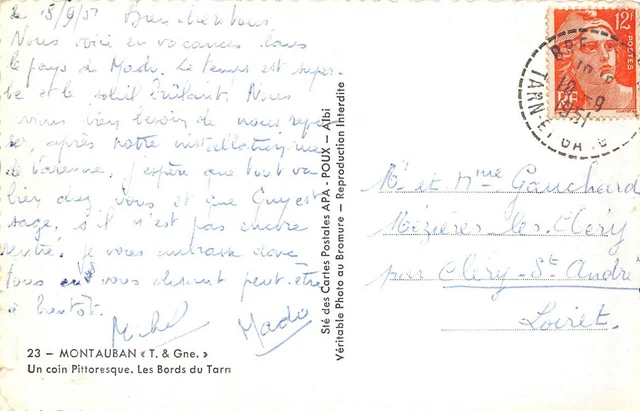 le 15/9/51 Bien chers tous
Nous voici en vacances dans
le pays de Mado. Le temps est super-
be et le soleil brûlant. Nous
avions bien besoin de nous repo-
ser, après notre installation rue
de Varenne. J'espère que tout va
bien chez vous et que Guy est
sage, s'il n'est pas encore
rentré. Je vous embrasse donc
tous en vous disant peut-être
à bientôt.
Michel Mado
23 — MONTAUBAN « T. & Gne. »
Un coin Pittoresque. Les Bords du Tarn
Sté des Cartes Postales APA - POUX — Albi
Véritable Photo au Bromure — Reproduction Interdite
12F
POSTES
RF
18 - 9
1951
TARN-ET-GAR.
Mr et Mme Gauchard
Mézières-les-Cléry
par Cléry-St-André
Loiret.